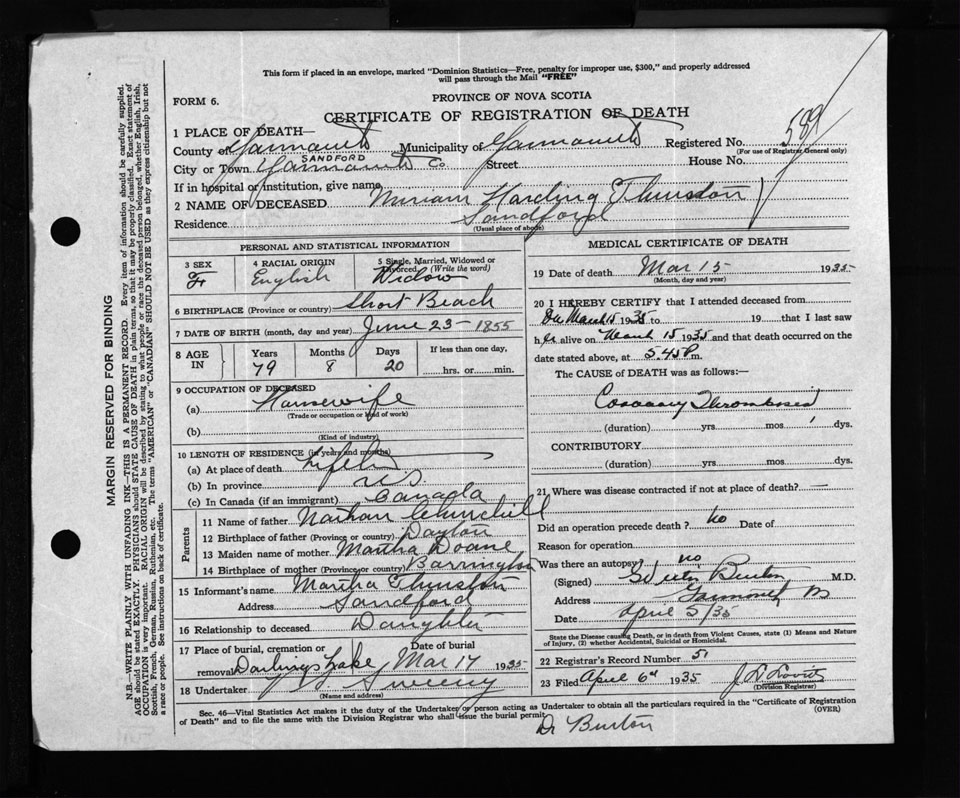 This form if placed in an envelope, marked "Dominion Statistics—Free, penalty for improper use, $300," and properly addressed
will pass through the Mail "FREE"
FORM 6.
PROVINCE OF NOVA SCOTIA
CERTIFICATE OF REGISTRATION OF DEATH
1 PLACE OF DEATH—
County of Yarmouth Municipality of Yarmouth Registered No. 589
(For use of Registrar General only)
SANDFORD
City or Town Yarmouth Co. Street House No.
If in hospital or institution, give name
2 NAME OF DECEASED Miriam Harding Thurston
Residence Sandford
(Usual place of abode)
PERSONAL AND STATISTICAL INFORMATION
3 SEX F
4 RACIAL ORIGIN English
5 Single, Married, Widowed or Divorced (Write the word) Widow
6 BIRTHPLACE (Province or country) Short Beach
7 DATE OF BIRTH (month, day and year) June 23 - 1855
8 AGE IN Years 79 Months 8 Days 20 If less than one day, hrs. or min.
9 OCCUPATION OF DECEASED
(a) Housewife
(Trade or occupation or kind of work)
(b)
(Kind of industry)
10 LENGTH OF RESIDENCE (in years and months)
(a) At place of death Life
(b) In province N.S.
(c) In Canada (if an immigrant) Canada
Parents
11 Name of father Nathan Churchill
12 Birthplace of father (Province or country) Dayton
13 Maiden name of mother Martha Doane
14 Birthplace of mother (Province or country) Barrington
15 Informant's name Martha Thurston
Address Sandford
16 Relationship to deceased Daughter
17 Place of burial, cremation or removal Darlings Lake Date of burial Mar 17 1935
18 Undertaker Sweeny
(Name and address)
MEDICAL CERTIFICATE OF DEATH
19 Date of death Mar 15 1935
(Month, day and year)
20 I HEREBY CERTIFY that I attended deceased from
March 15 1935 to 19 that I last saw
her alive on March 15 1935 and that death occurred on the
date stated above, at 5.45 P m.
The CAUSE of DEATH was as follows:—
Coronary Thrombosis
(duration) yrs. mos. 1 dys.
CONTRIBUTORY
(duration) yrs. mos. dys.
21 Where was disease contracted if not at place of death? —
Did an operation precede death? No Date of
Reason for operation
Was there an autopsy? no
(Signed) Burton M.D.
Address Yarmouth
Date April 5/35
State the Disease causing Death, or in death from Violent Causes, state (1) Means and Nature
of Injury, (2) whether Accidental, Suicidal or Homicidal.
22 Registrar's Record Number 51
23 Filed April 6th 1935
(Division Registrar)
Sec. 46—Vital Statistics Act makes it the duty of the Undertaker or person acting as Undertaker to obtain all the particulars required in the "Certificate of Registration
of Death" and to file the same with the Division Registrar who shall issue the burial permit. (OVER)
Dr Burton
MARGIN RESERVED FOR BINDING
N.B.—WRITE PLAINLY WITH UNFADING INK—THIS IS A PERMANENT RECORD. Every item of information should be carefully supplied.
AGE should be stated EXACTLY. PHYSICIANS should STATE CAUSE OF DEATH in plain terms, so that it may be properly classified. Exact statement of
OCCUPATION is very important. RACIAL ORIGIN will be described by stating to what people or race the deceased person belonged, whether English, Irish,
Scottish, French, German, Russian, Ruthenian, etc. The terms "AMERICAN" or "CANADIAN" SHOULD NOT BE USED as they express citizenship but not
a race or people. See instructions on back of certificate.